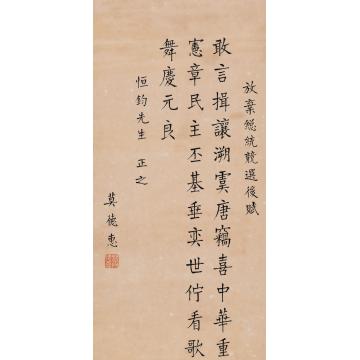 放棄總統競選後賦
敢言揖讓溯虞唐竊喜中華重
憲章民主丕基垂奕世佇看歌
舞慶元良
恒鈞先生 正之
莫德惠